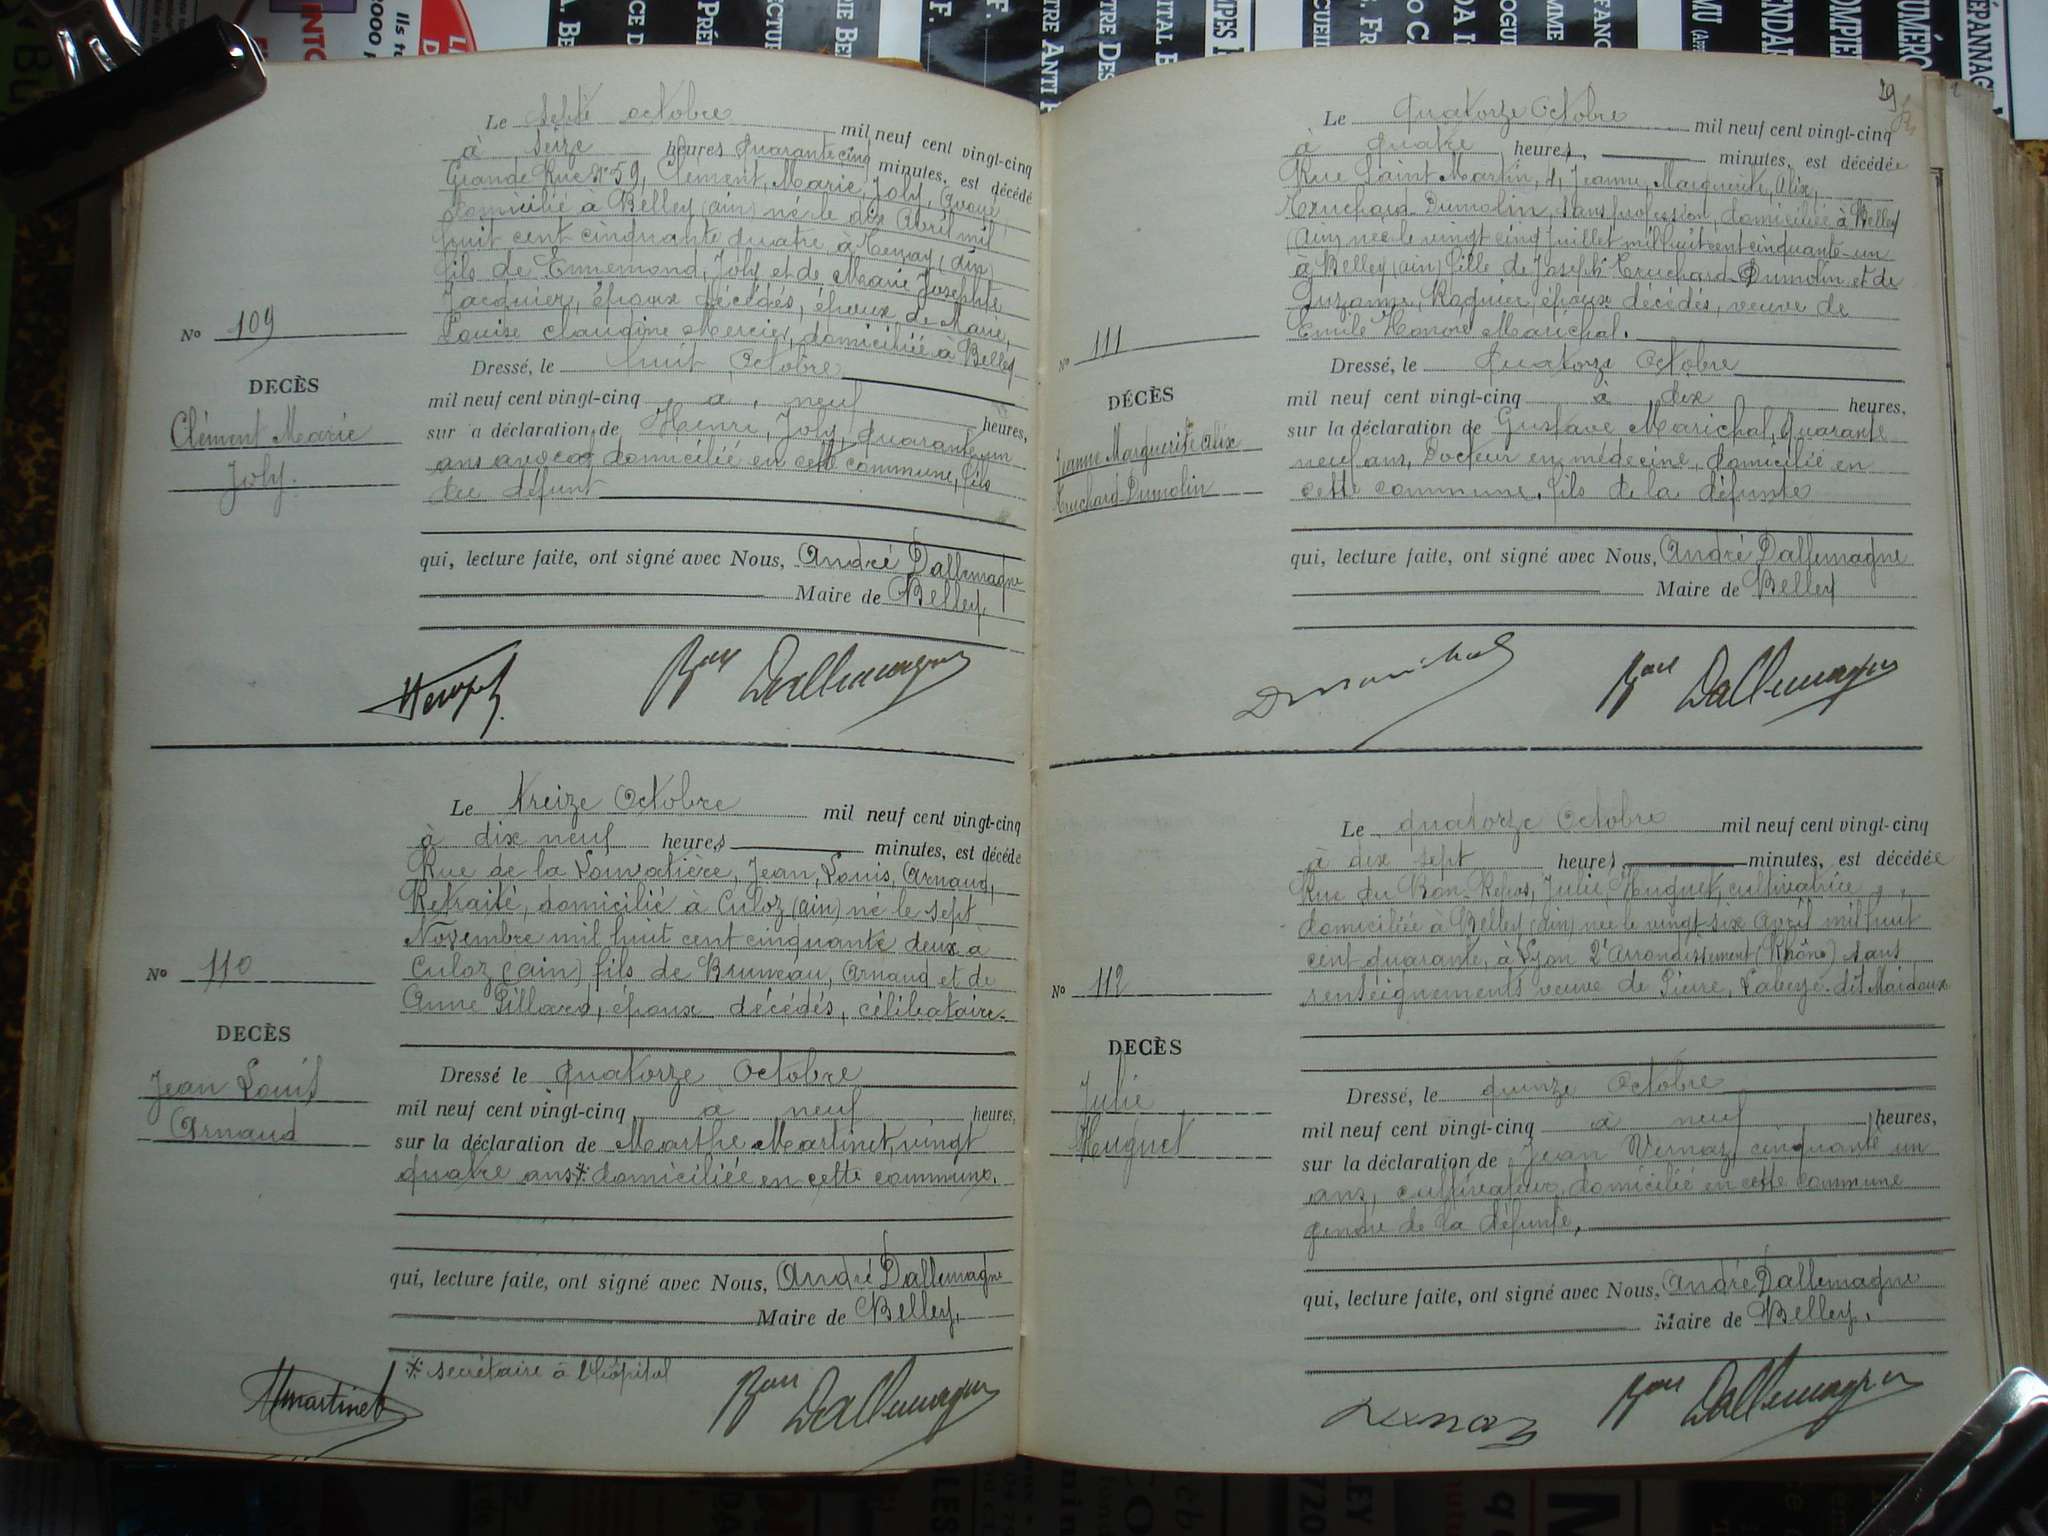 Le sept octobre mil neuf cent vingt-cinq
à seize heures quarante cinq minutes, est décédé
Grande Rue N° 59, Clément, Marie, Joly, Avoué
domicilié à Belley (ain) né le dix Avril mil
huit cent cinquante quatre, à Tenay (ain)
fils de Ennemond, Joly et de Marie Josephte
Jacquier, époux décédés, époux de Marie,
Louise Claudine Mercier, domiciliée à Belley
N° 109
DECÈS
Clément Marie
Joly.
Dressé, le huit Octobre
mil neuf cent vingt-cinq à neuf heures,
sur a déclaration de Henri, Joly, quarante un
ans avocat domicilié en cette commune, fils
du défunt
qui, lecture faite, ont signé avec Nous, André Dallemagne
Maire de Belley.
Bon Dallemagne
Le treize Octobre mil neuf cent vingt-cinq
à dix neuf heures minutes, est décédé
Rue de la Louvatière, Jean, Louis, Arnaud,
Retraité, domicilié à Culoz (ain) né le sept
Novembre mil huit cent cinquante deux à
Culoz (ain) fils de Bruneau, Arnaud et de
Anne Pillard, époux décédés, célibataire.
N° 110
DECÈS
Jean Louis
Arnaud
Dressé le quatorze Octobre
mil neuf cent vingt-cinq à neuf heures,
sur la déclaration de Marthe Martinet, vingt
quatre ans * domiciliée en cette commune.
qui, lecture faite, ont signé avec Nous, André Dallemagne
Maire de Belley.
* secrétaire à l'hôpital
Mmartinet
Bon Dallemagne
29
Le Quatorze Octobre mil neuf cent vingt-cinq
à quatre heures, minutes, est décédée
Rue Saint Martin, Jeanne, Marguerite, Alix,
Truchard-Dumolin, sans profession, domiciliée à Belley
(Ain) née le vingt cinq Juillet mil huit cent cinquante-un
à Belley (ain) fille de Joseph Truchard-Dumolin et de
Suzanne, Roguier, époux décédés, veuve de
Emile Honoré Marichal.
N° 111
DÉCÈS
Jeanne Marguerite Alix
Truchard-Dumolin
Dressé, le Quatorze Octobre
mil neuf cent vingt-cinq à dix heures,
sur la déclaration de Gustave Marichal, Quarante
neuf ans, Docteur en médecine, domicilié en
cette commune, fils de la défunte
qui, lecture faite, ont signé avec Nous, André Dallemagne
Maire de Belley
Bon Dallemagne
Le quatorze Octobre mil neuf cent vingt-cinq
à dix sept heures minutes, est décédée
Rue du Bon-Repos, Julie, Huguet, cultivatrice,
domiciliée à Belley (ain) née le vingt-six avril mil huit
cent quarante, à Lyon 2e Arrondissement (Rhône) sans
renseignements veuve de Pierre, Labeye dit Maidoux
N° 112
DECÈS
Julie
Huguet
Dressé, le quinze Octobre
mil neuf cent vingt-cinq à neuf heures,
sur la déclaration de Jean Vernaz cinquante un
ans, cultivateur, domicilié en cette commune
gendre de la défunte.
qui, lecture faite, ont signé avec Nous, André Dallemagne
Maire de Belley.
Vernaz
Bon Dallemagne